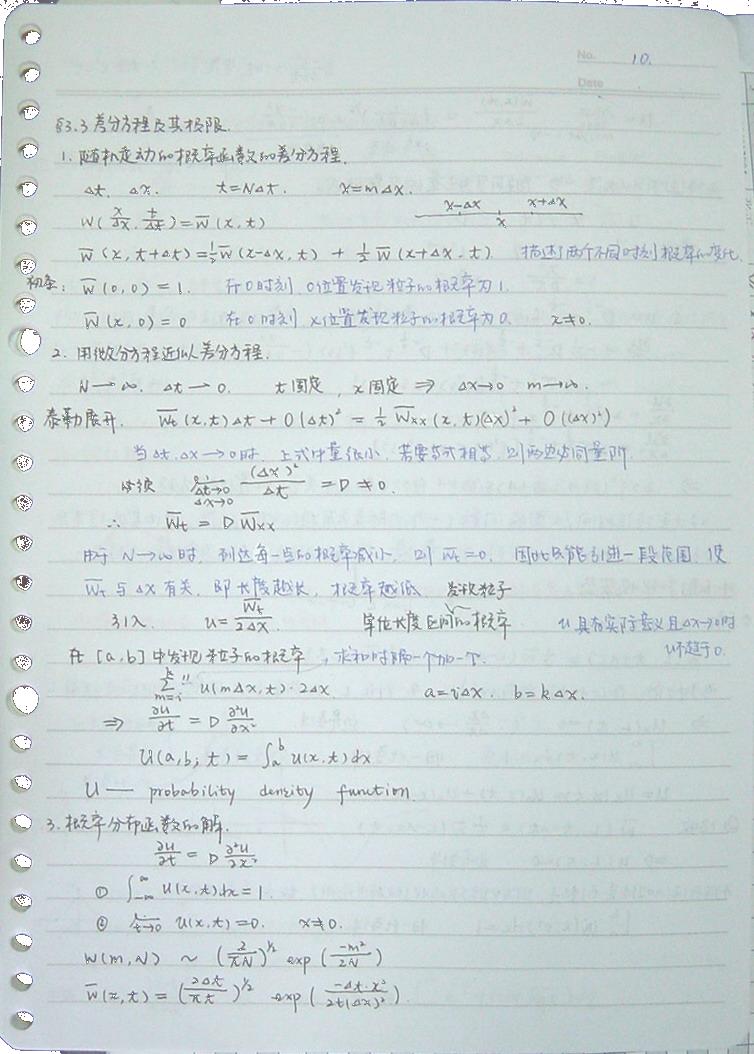 No. 10.
Date
§3.3 差分方程及其极限.
1. 随机走动的概率函数的差分方程.
Δt. Δx. t=NΔt. x=mΔx.
x-Δx x+Δx
x
W(x/Δx, t/Δt)=W̅(x,t)
W̅(x, t+Δt)=½W̅(x-Δx, t) + ½W̅(x+Δx, t) 描述了两个不同时刻概率的变化.
初条: W̅(0,0)=1. 在0时刻, 0位置发现粒子的概率为1.
W̅(x,0)=0 在0时刻, x位置发现粒子的概率为0. x≠0.
2. 用微分方程近似差分方程.
N→∞. Δt→0. t固定, x固定 ⇒ Δx→0 m→∞.
泰勒展开. W̅t(x,t)Δt+O(Δt)² = ½ W̅xx(x,t)(Δx)²+O((Δx)²)
当Δt,Δx→0时, 上式中量很小, 若要等式相等, 则两边为同量阶.
必须 lim Δt→0 Δx→0 (Δx)²/Δt = D ≠ 0.
∴ W̅t = D W̅xx
由于N→∞时, 到达每一点的概率减小, 则 W̅t=0. 因此只能引进一段范围, 使
W̅t与Δx有关, 即长度越长, 概率越低 发现粒子
引入 u = W̅t/2Δx. 单位长度区间的概率 u具有实际意义且Δx→0时
u不趋于0.
在[a,b]中发现粒子的概率, 求和时隔一个加一个.
∑'' m=i k u(mΔx,t)·2Δx a=iΔx. b=kΔx.
⇒ ∂u/∂t = D ∂²u/∂x²
U(a,b; t) = ∫ₐᵇ u(x,t)dx
U — probability density function.
3. 概率分布函数的解.
∂u/∂t = D ∂²u/∂x²
① ∫₋∞^∞ u(x,t)dx=1.
② lim t→0 u(x,t)=0. x≠0.
W(m,N) ~ (2/πN)^½ exp(-m²/2N)
W̅(x,t) = (2Δt/πt)^½ exp(-Δt·x²/2t(Δx)²).